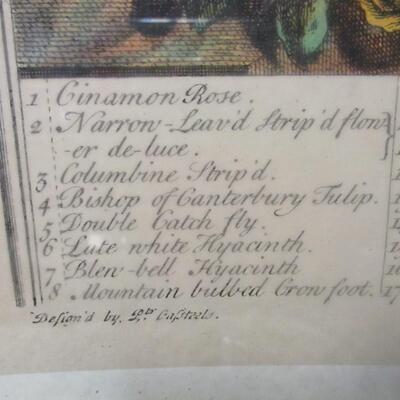 1 Cinamon Rose.
2 Narrow-Leav'd Strip'd flow-
er de-luce.
3 Columbine Strip'd.
4 Bishop of Canterbury Tulip.
5 Double Catch fly.
6 Lute white Hyacinth.
7 Blew-bell Hyacinth
8 Mountain bulbed Crow foot. 17
Design'd by Pr. Casteels.